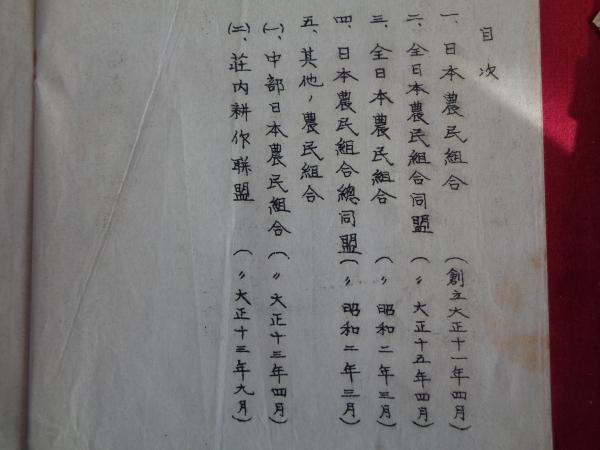 目次
一、日本農民組合 (創立大正十一年四月)
二、全日本農民組合同盟 (〃 大正十五年四月)
三、全日本農民組合 (〃 昭和二年三月)
四、日本農民組合總同盟 (〃 昭和二年三月)
五、其他ノ農民組合
(一)、中部日本農民組合 (〃 大正十三年四月)
(二)、荘内耕作聯盟 (〃 大正十三年九月)